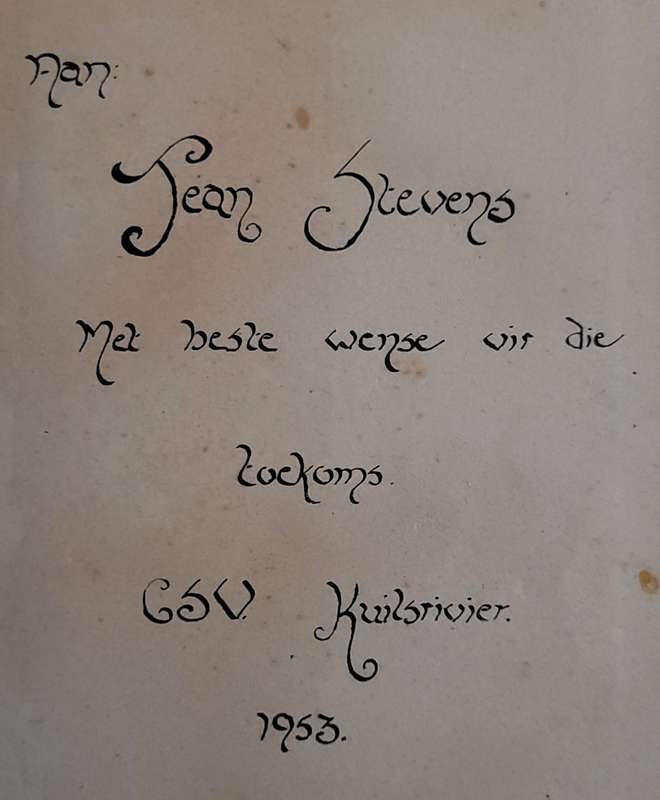 Aan:
Jean Stevens
Met beste wense vir die
toekoms.
CSV. Kuilsrivier.
1953.